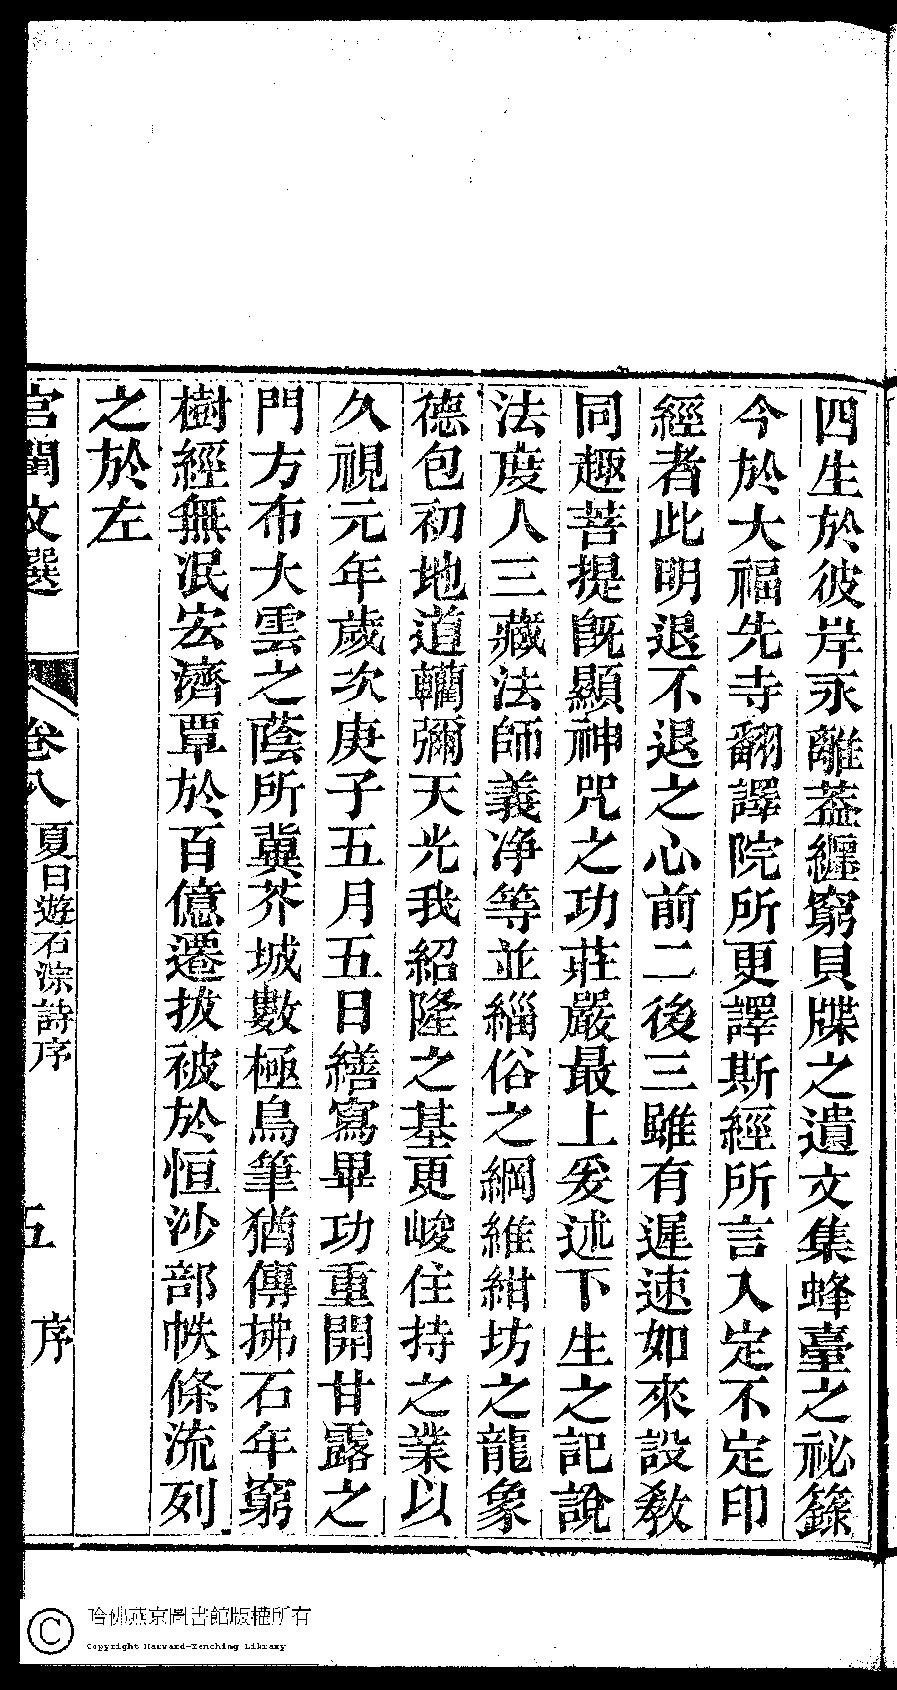 四生於彼岸永離葢纒窮貝牒之遺文集蜂臺之祕籙
今於大福先寺翻譯院所更譯斯經所言入定不定印
經者此明退不退之心前二後三雖有遲速如來設教
同趣菩提旣顯神咒之功莊嚴最上爰述下生之記說
法度人三藏法師義净等並緇俗之綱維紺坊之龍象
德包初地道轥彌天光我紹隆之基更峻住持之業以
久視元年歲次庚子五月五日繕寫畢功重開甘露之
門方布大雲之蔭所冀芥城數極鳥筆猶傳拂石年窮
樹經無泯宏濟覃於百億遷拔被於恒沙部帙條流列
之於左
宮閨文選 卷八 夏日遊石淙詩序 五 序
哈佛燕京圖書館版權所有
Copyright Harvard-Yenching Library